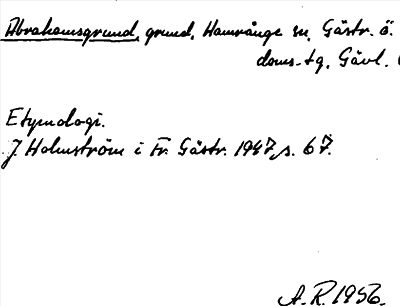 Abrahamsgrund, grund, Hamrånge sn, Gästr. ö.
doms.-tg, Gävl.
Etymologi.
J Holmström i Fr. Gästr. 1947, s. 67.
A.R. 1956.